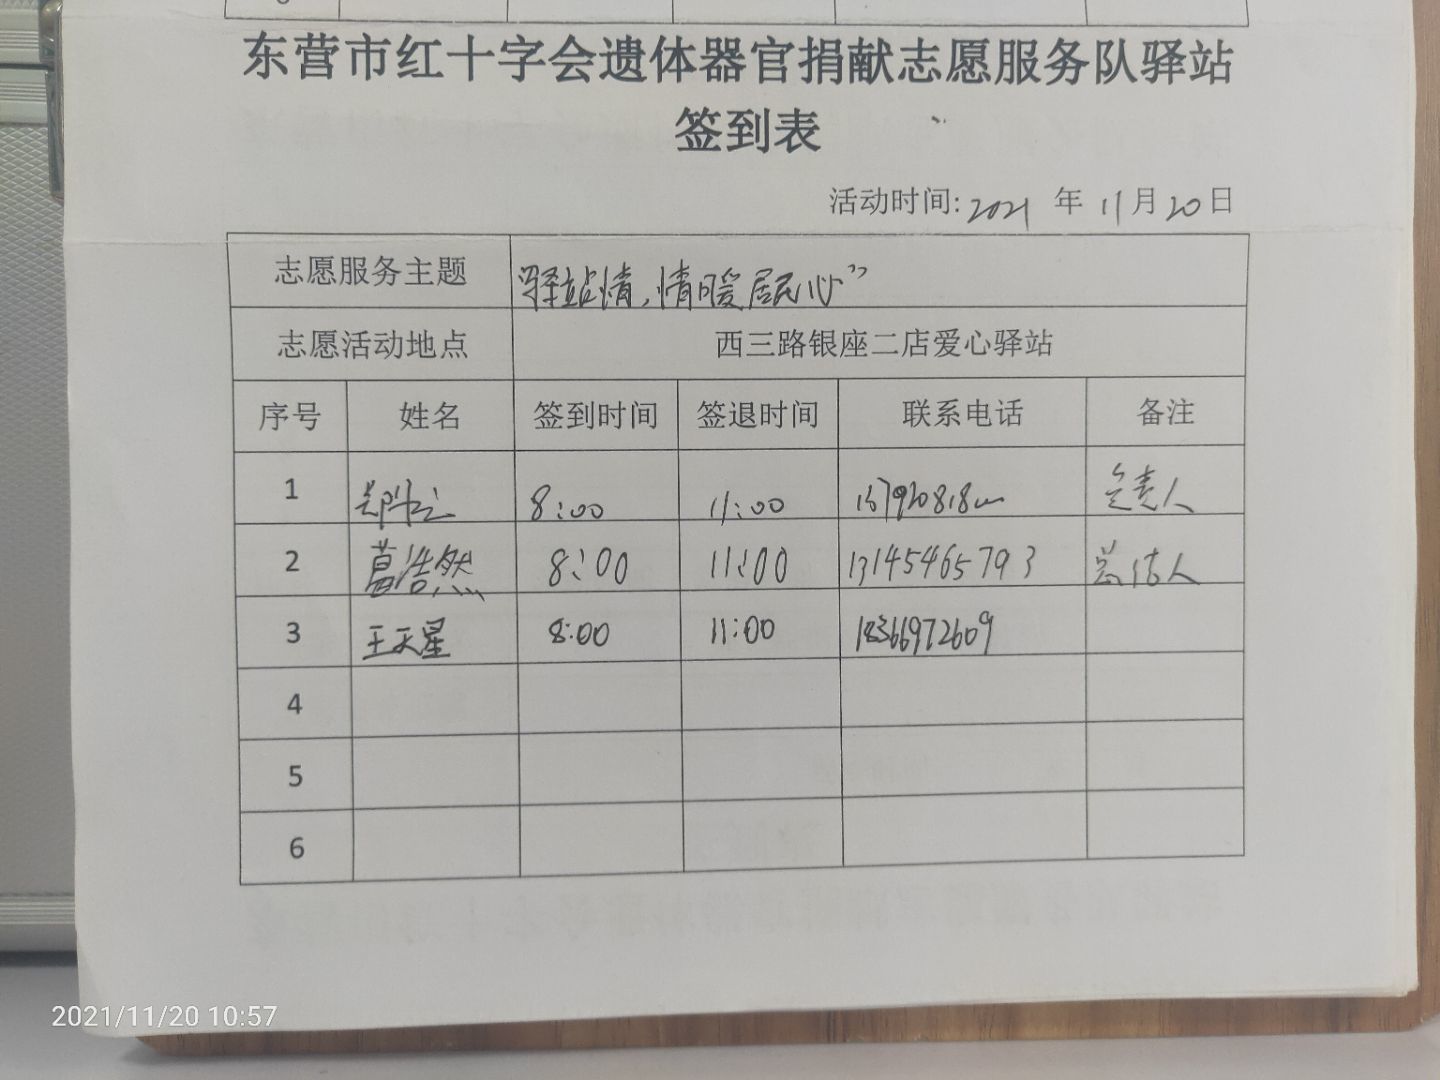 东营市红十字会遗体器官捐献志愿服务队驿站
签到表
活动时间:2021 年 11月20日
志愿服务主题 “驿站情,情暖居民心”
志愿活动地点 西三路银座二店爱心驿站
序号 姓名 签到时间 签退时间 联系电话 备注
1 8:00 11:00 负责人
2 葛浩然 8:00 11:00 13145465793 总结人
3 王天星 8:00 11:00 18366972609
4
5
6
2021/11/20 10:57